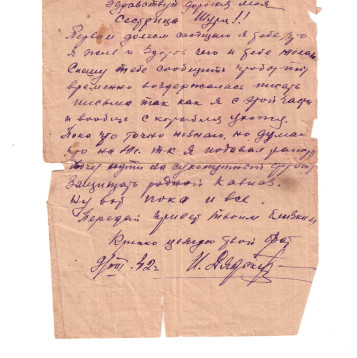 Здравствуй дорогая моя
Сестрица Шура!!
Первым долгом сообщаю я тебе что
я жив и здоров чего и тебе желаю
Спешу тебе сообщить чтобы ты
временно воздержалась писать
письма так как я с этой
и вообще с корабля ухожу.
Пока что точно незнаю, но думаю
что на т.к я подавал рапорт
хочу идти на сухопутный фронт
Защищать родной Кавказ.
Ну вот пока и все.
Передай привет твоим близким
Крепко целую твой брат
42г. И.